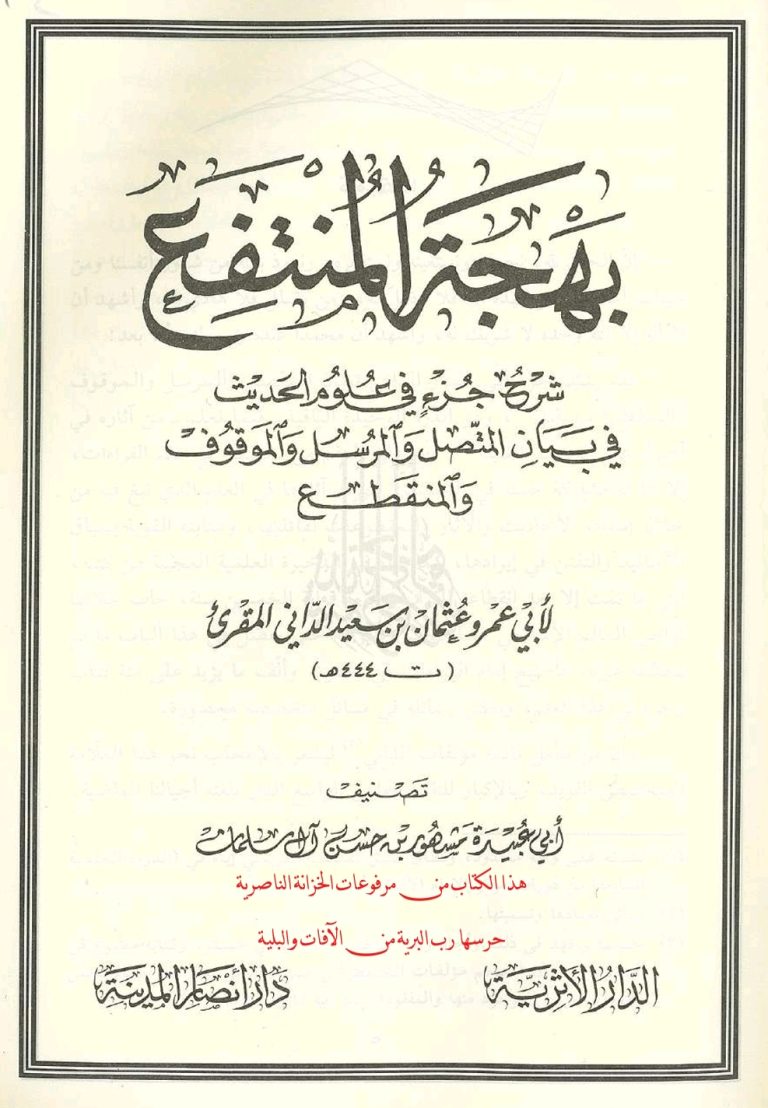 بَهْجَةُ الْمُنْتَفِعِ
شَرْحُ جُزْءٍ فِي عُلُومِ الْحَدِيثِ
فِي بَيَانِ الْمُتَّصِلِ وَالْمُرْسَلِ وَالْمَوْقُوفِ
وَالْمُنْقَطِعِ
لأبي عمرو عثمان بن سعيد الداني المقرئ
(ت ٤٤٤هـ)
تَصْنِيف
أبي عبيدة مشهور بن حسن آل سلمان
هذا الكتاب من مرفوعات الخزانة الناصرية
حرسها رب البرية من الآفات والبلية
الدَّارُ الأَثَرِيَّة
دَارُ أَنْصَارِ الْمَدِينَة